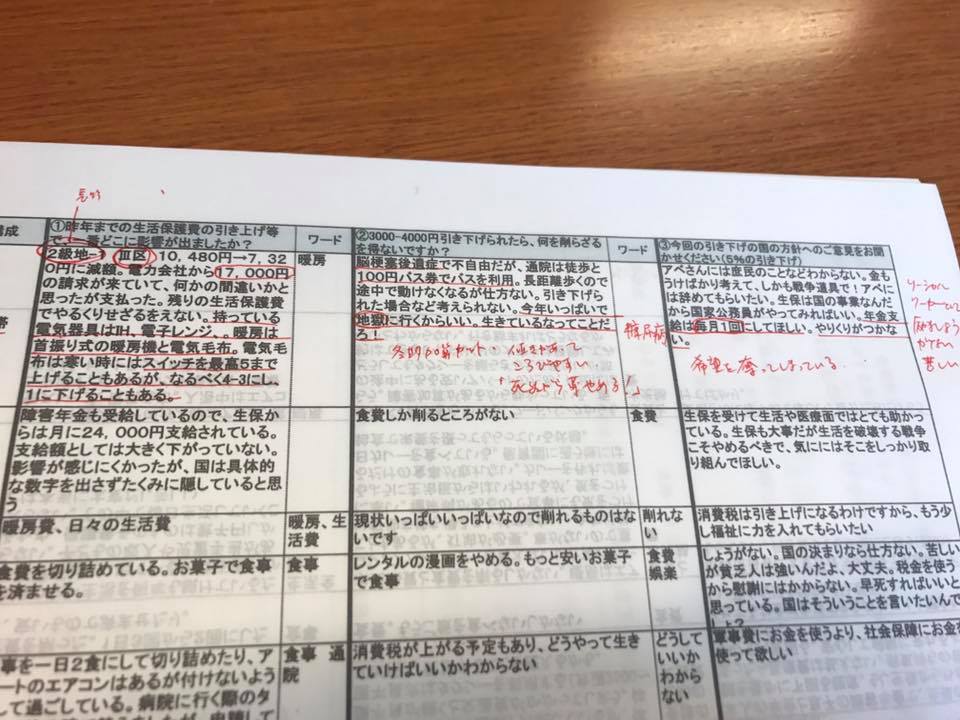 長野
成
①昨年までの生活保護費の引き上げ等
で、一番どこに影響が出ましたか？
ワード
②3000-4000円引き下げられたら、何を削らざる
を得ないですか？
ワード
③今回の引き下げの国の方針へのご意見をお聞
かせください（5%の引き下げ）
2級地-1 Ⅲ区 10,480円→7,32
0円に減額。電力会社から17,000円
の請求が来ていて、何かの間違いかと
思ったが支払った。残りの生活保護費
でやるくりせざるをえない。持っている
電気器具はIH、電子レンジ。暖房は
首振り式の暖房機と電気毛布。電気毛
布は寒い時にはスイッチを最高5まで
上げることもあるが、なるべく4-3にし、
1に下げることもある。
暖房
脳梗塞後遺症で不自由だが、通院は徒歩と
100円バス券でバスを利用。長距離歩くので
途中で動けなくなるが仕方ない。引き下げら
れた場合など考えられない。今年いっぱいで
地獄に行くからいい。生きているなってことだ
ろ！
糖尿病
「死んだら辞める！」
アベさんには庶民のことなどわからない。金も
うけばかり考えて、しかも戦争道具で！アベに
は辞めてもらいたい。生保は国の事業なんだ
から国家公務員がやってみればいい。年金支
給は毎月1回にしてほしい。やりくりがつかな
い。
ソーシャル
ワーカー
苦しい
帯
障害年金も受給しているので、生保か
らは月に24,000円支給されている。
支給額としては大きく下がっていない。
影響が感じにくかったが、国は具体的
な数字を出さずたくみに隠していると思
う
食費しか削るところがない
食費
生保を受けて生活や医療面ではとても助かっ
ている。生保も大事だが生活を破壊する戦争
こそやめるべきで、気ににはそこをしっかり取り
組んでほしい。
暖房費、日々の生活費
暖房、生
活費
現状いっぱいいっぱいなので削れるものはな
いです
削れな
い
消費税は引き上げになるわけですから、もう少
し福祉に力を入れてもらいたい
食費を切り詰めている。お菓子で食事
を済ませる。
食事
レンタルの漫画をやめる。もっと安いお菓子
で食事
食費
娯楽
しょうがない。国の決まりなら仕方ない。苦しい
が貧乏人は強いんだよ、大丈夫。税金を使う
から慰謝にはかからない。早死すればいいと
思っている。国はそういうことを言いたいんで
しょ？
事を一日2食にして切り詰めたり、ア
ートのエアコンはあるが付けないよう
して過ごしている。病院に行く際のタ
食事 通
院
消費税が上がる予定もあり、どうやって生き
ていけばいいかわからない
どうして
いいか
わから
ない
軍事費にお金を使うより、社会保障にお金を
使って欲しい